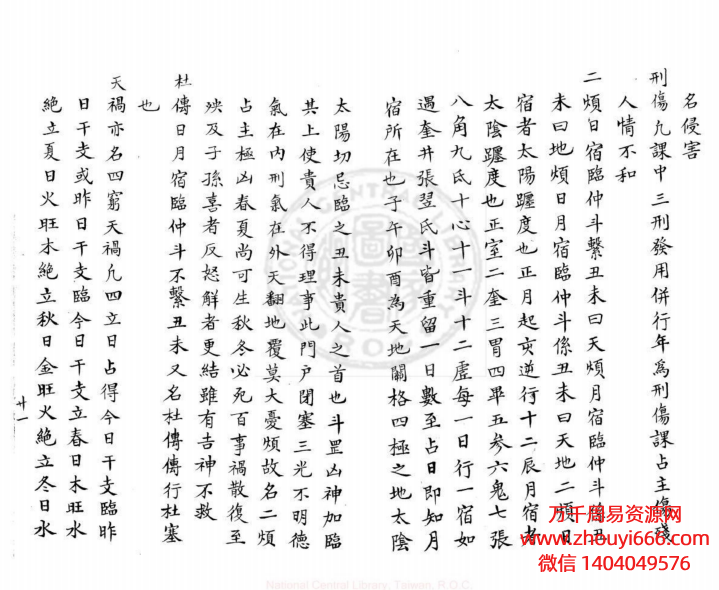 名侵害
刑傷凡課中三刑發用併行年為刑傷課占主傷殘
人情不和
二煩日宿臨仲斗繫丑未曰天煩月宿臨仲斗繫丑
未曰地煩日月宿臨仲斗係丑未曰天地二煩日
宿者太陽躔度也正月起亥逆行十二辰月宿者
太陰躔度也正室二奎三胃四畢五參六鬼七張
八角九氐十心十一斗十二虛每一日行一宿如
遇奎井張翌氐斗皆重留一日數至占日即知月
宿所在也子午卯酉為天地關格四極之地太陰
太陽切忌臨之丑未貴人之首也斗罡凶神加臨
其上使貴人不得理事此門户閉塞三光不明德
氣在內刑氣在外天翻地覆莫大憂煩故名二煩
占主極凶春夏尚可生秋冬必死百事禍散復至
殃及子孫喜者反怒解者更結雖有吉神不救
杜傳日月宿臨仲斗不繫丑未又名杜傳傳行杜塞
也
天禍亦名四窮天禍凡四立日占得今日干支臨昨
日干支或昨日干支臨今日干支立春日木旺水
絶立夏日火旺木絶立秋日金旺火絶立冬日水
廿一
万千周易资源网
www.zhouyi666.com
微信 1404049576
National Central Library, Taiwan, R.O.C.